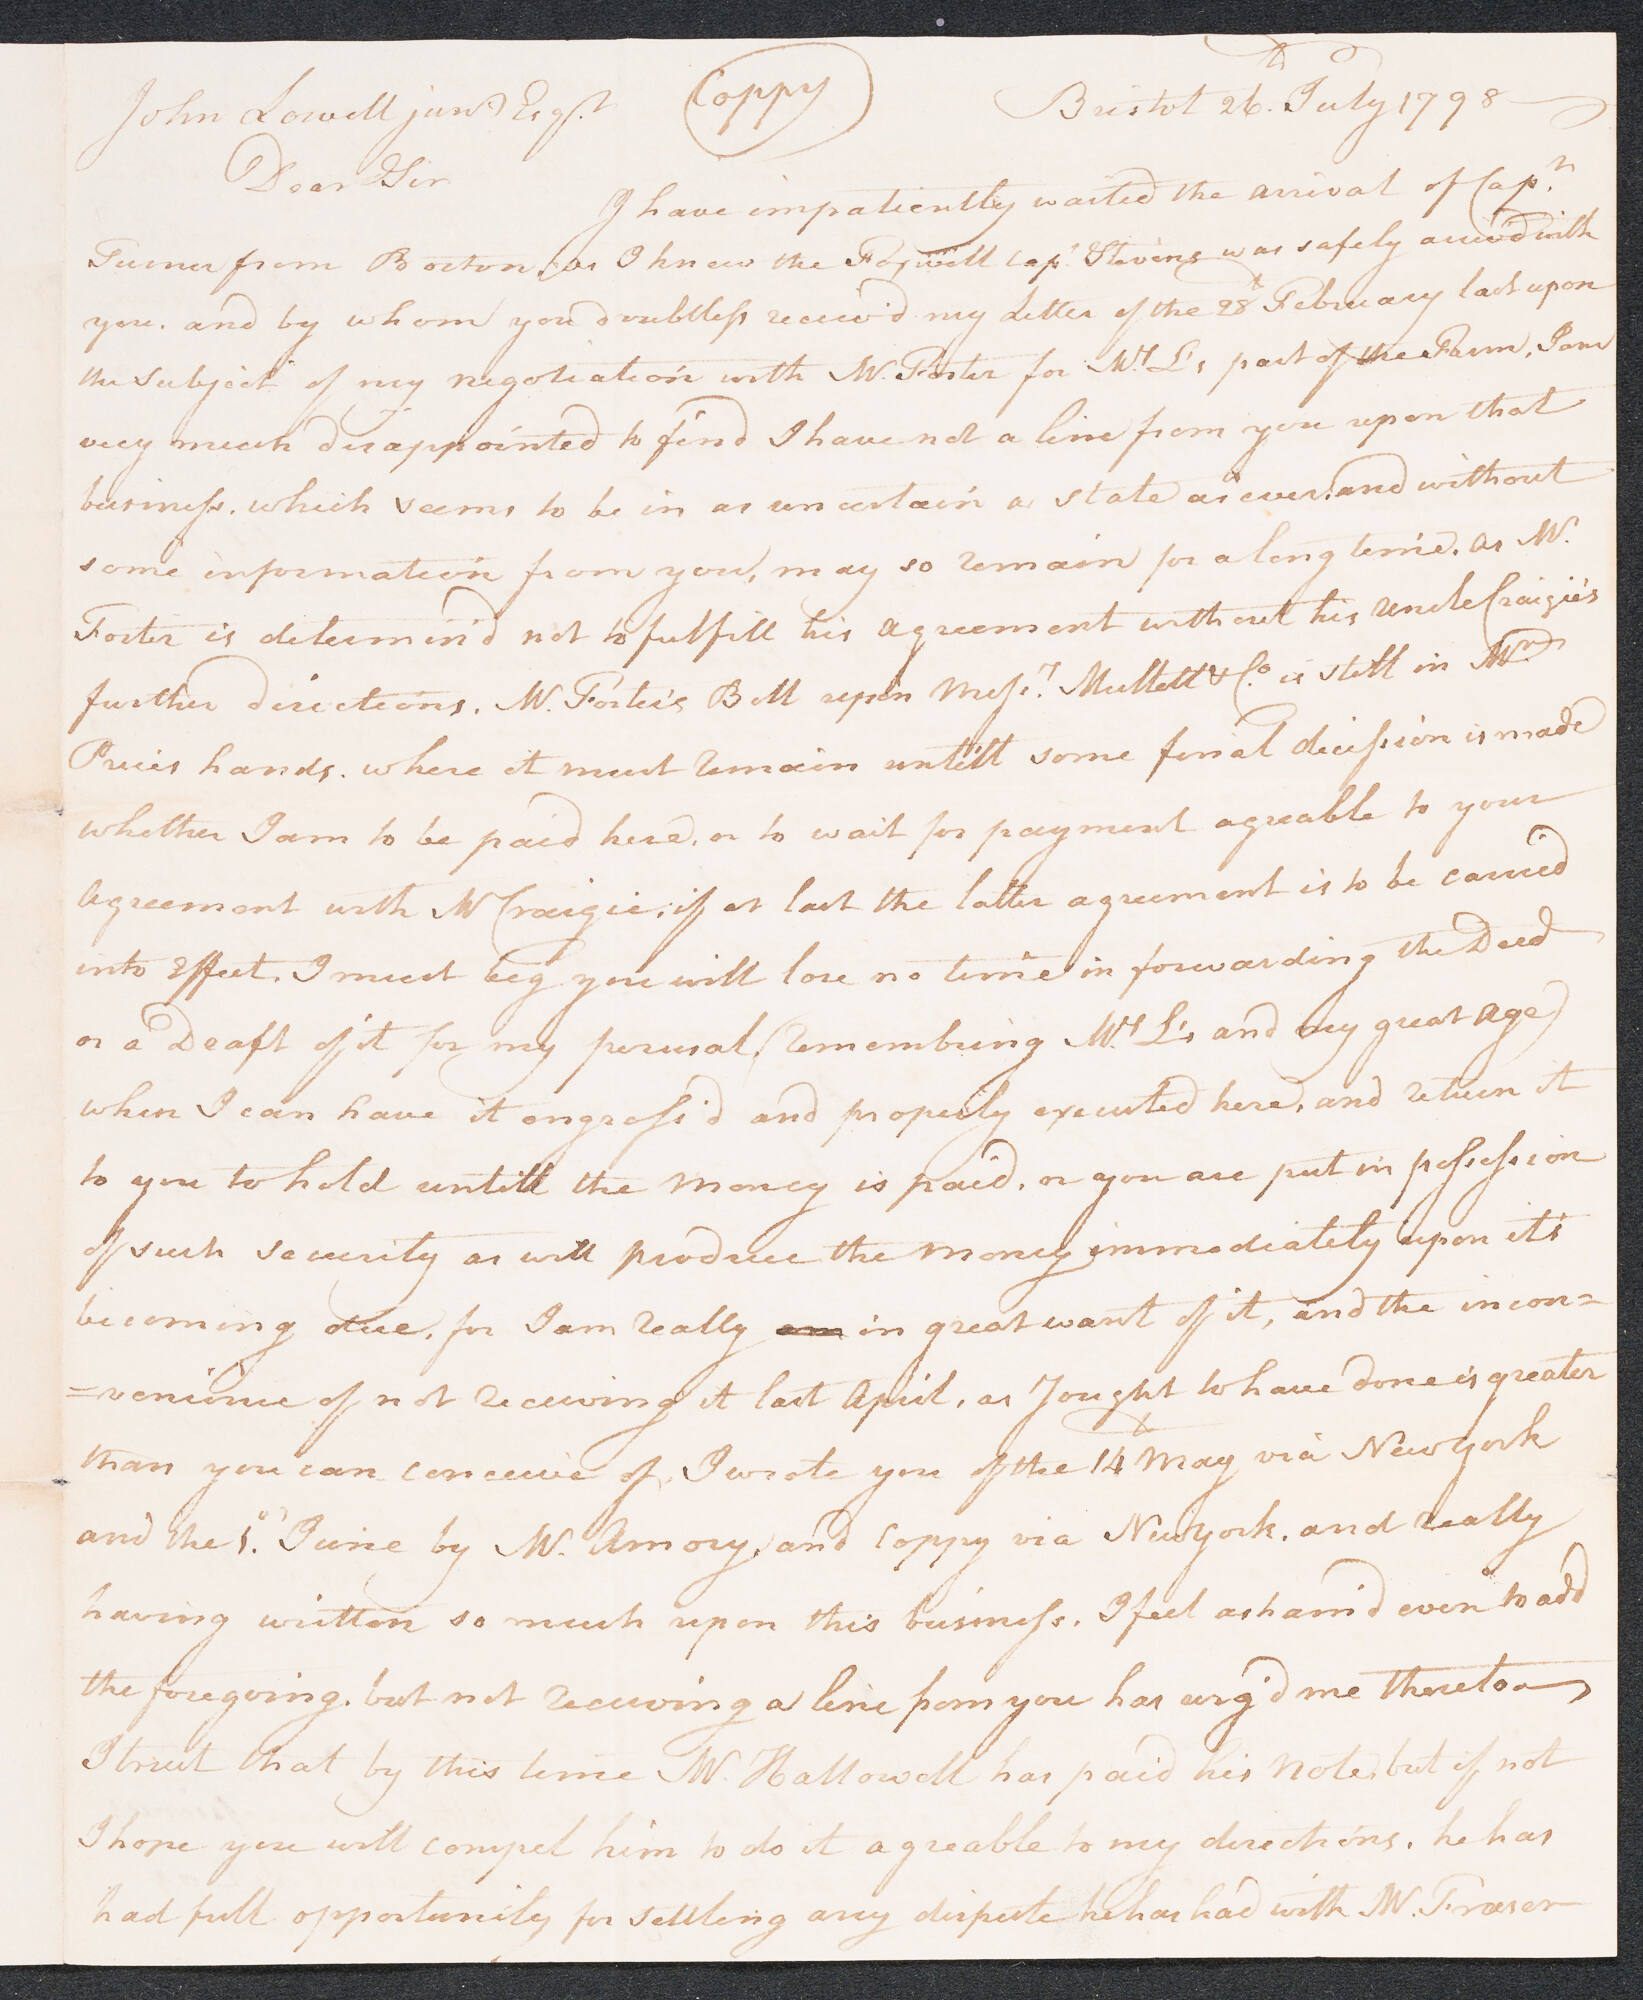 John Lowell junr Esqr.
(Coppy)
Bristol 26th. July 1798
Dear Sir
I have impatiently waited the arrival of Capn.
Turner from Boston, as I knew the Foxwell Capt. Stevens was safely arriv'd with
you. and by whom you doubtless receiv'd my Letter of the 28th February last upon
the subject of my negotiation with Mr. Foster for Mrs L's part of the Farm, I am
very much disappointed to find I have not a line from you upon that
business. which seems to be in as uncertain a state as ever, and without
some information from you, may so remain for a long time. as Mr.
Foster is determin'd not to fulfill his agreement without his Uncle Craigie's
further directions. Mr. Foster's Bill upon Messrs. Mullett & Co. is still in Mr.
Prices hands. where it must remain untill some final decission is made
whether I am to be paid here, or to wait for payment agreable to your
Agreement with Mr Craigie; if at last the latter agreement is to be carried
into Effect. I must beg you will lose no time in forwarding the Deed
or a Draft of it for my perusal, (remembring Mrs L's and my great age)
when I can have it engross'd and properly executed here, and return it
to you to hold untill the money is paid, or you are put in possession
of such security as will produce the money immediately upon it's
becoming due, for I am really am in great want of it, and the incon=
=venience of not receiving it last April, as I ought to have done is greater
than you can conceive of, I wrote you of the 14th May via New York
and the 1st. June by Mr. Amory, and Coppy via New York. and really
having written so much upon this business, I feel asham'd even to add
the foregoing. but not receiving a line from you has urg'd me thereto
I trust that by this time Mr. Hallowell has paid his Note, but if not
I hope you will compel him to do it agreable to my directions. he has
had full opportunity for settling any dispute he has had with Mr. Fraser